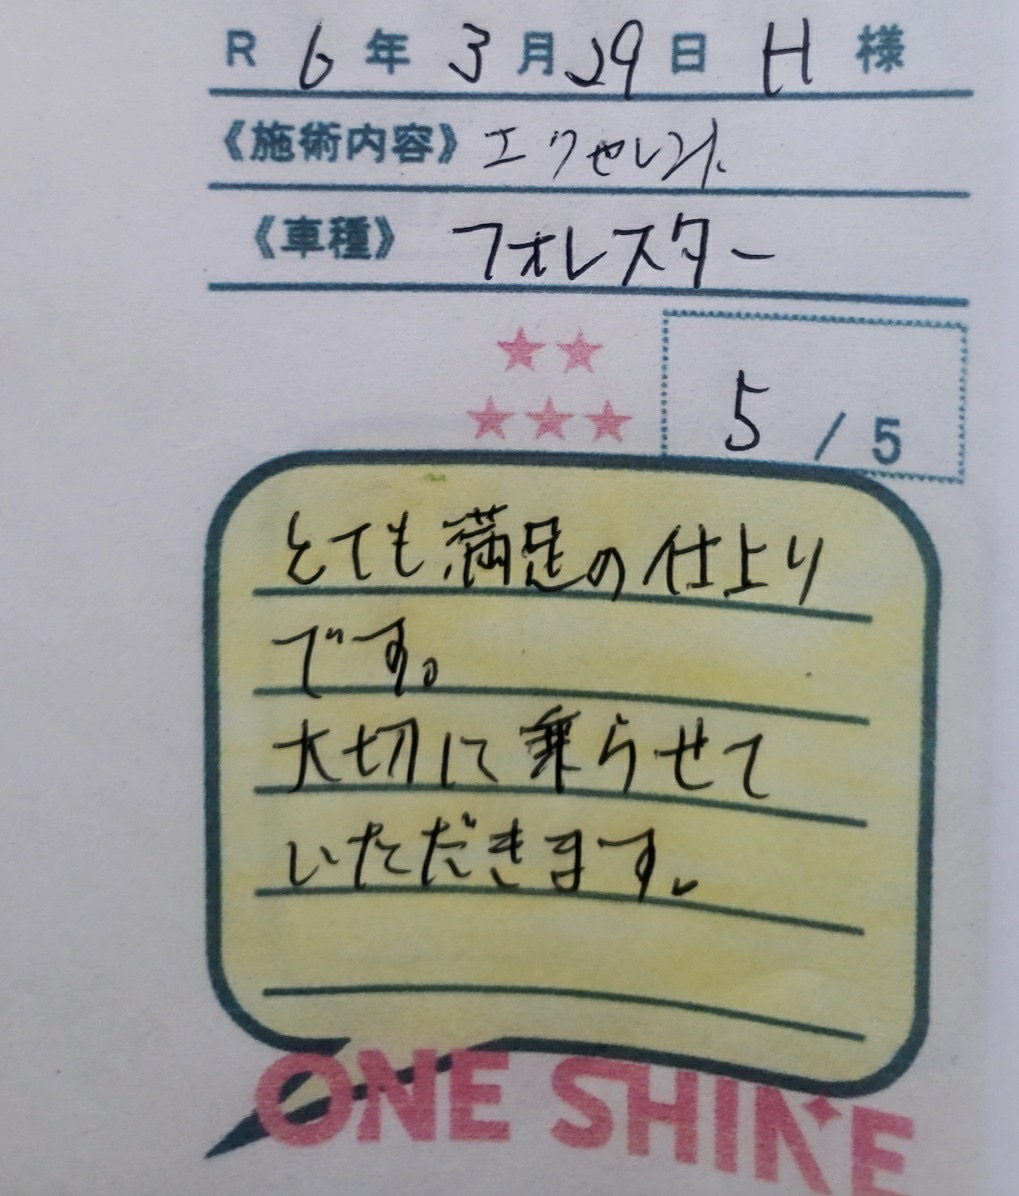 R 6年 3月29日 H 様
《施術内容》エクセレント
《車種》フォレスター
5/5
とても満足の仕上り
です。
大切に乗らせて
いただきます。
ONE SHINE